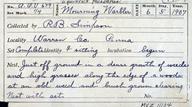 Mourning Warbler
Collected by R.B. Simpson
Locality Warren Co. Penna
Set Complete Identity ♀ sitting Incubation begun
Nest Just off ground in a dense growth of weeds
and high grasses along the edge of a woods
at an old weed and brush grown clearing
Nest with set